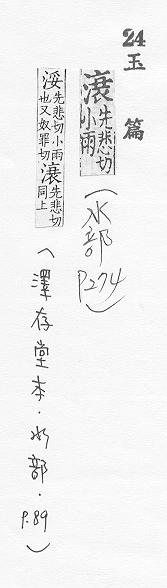 24
玉篇
滾先悲切
小雨
(水部
P.274)
浽先悲切小雨
也又奴罪切
滾先悲切
同上
(澤存堂本·水部·
P.89)